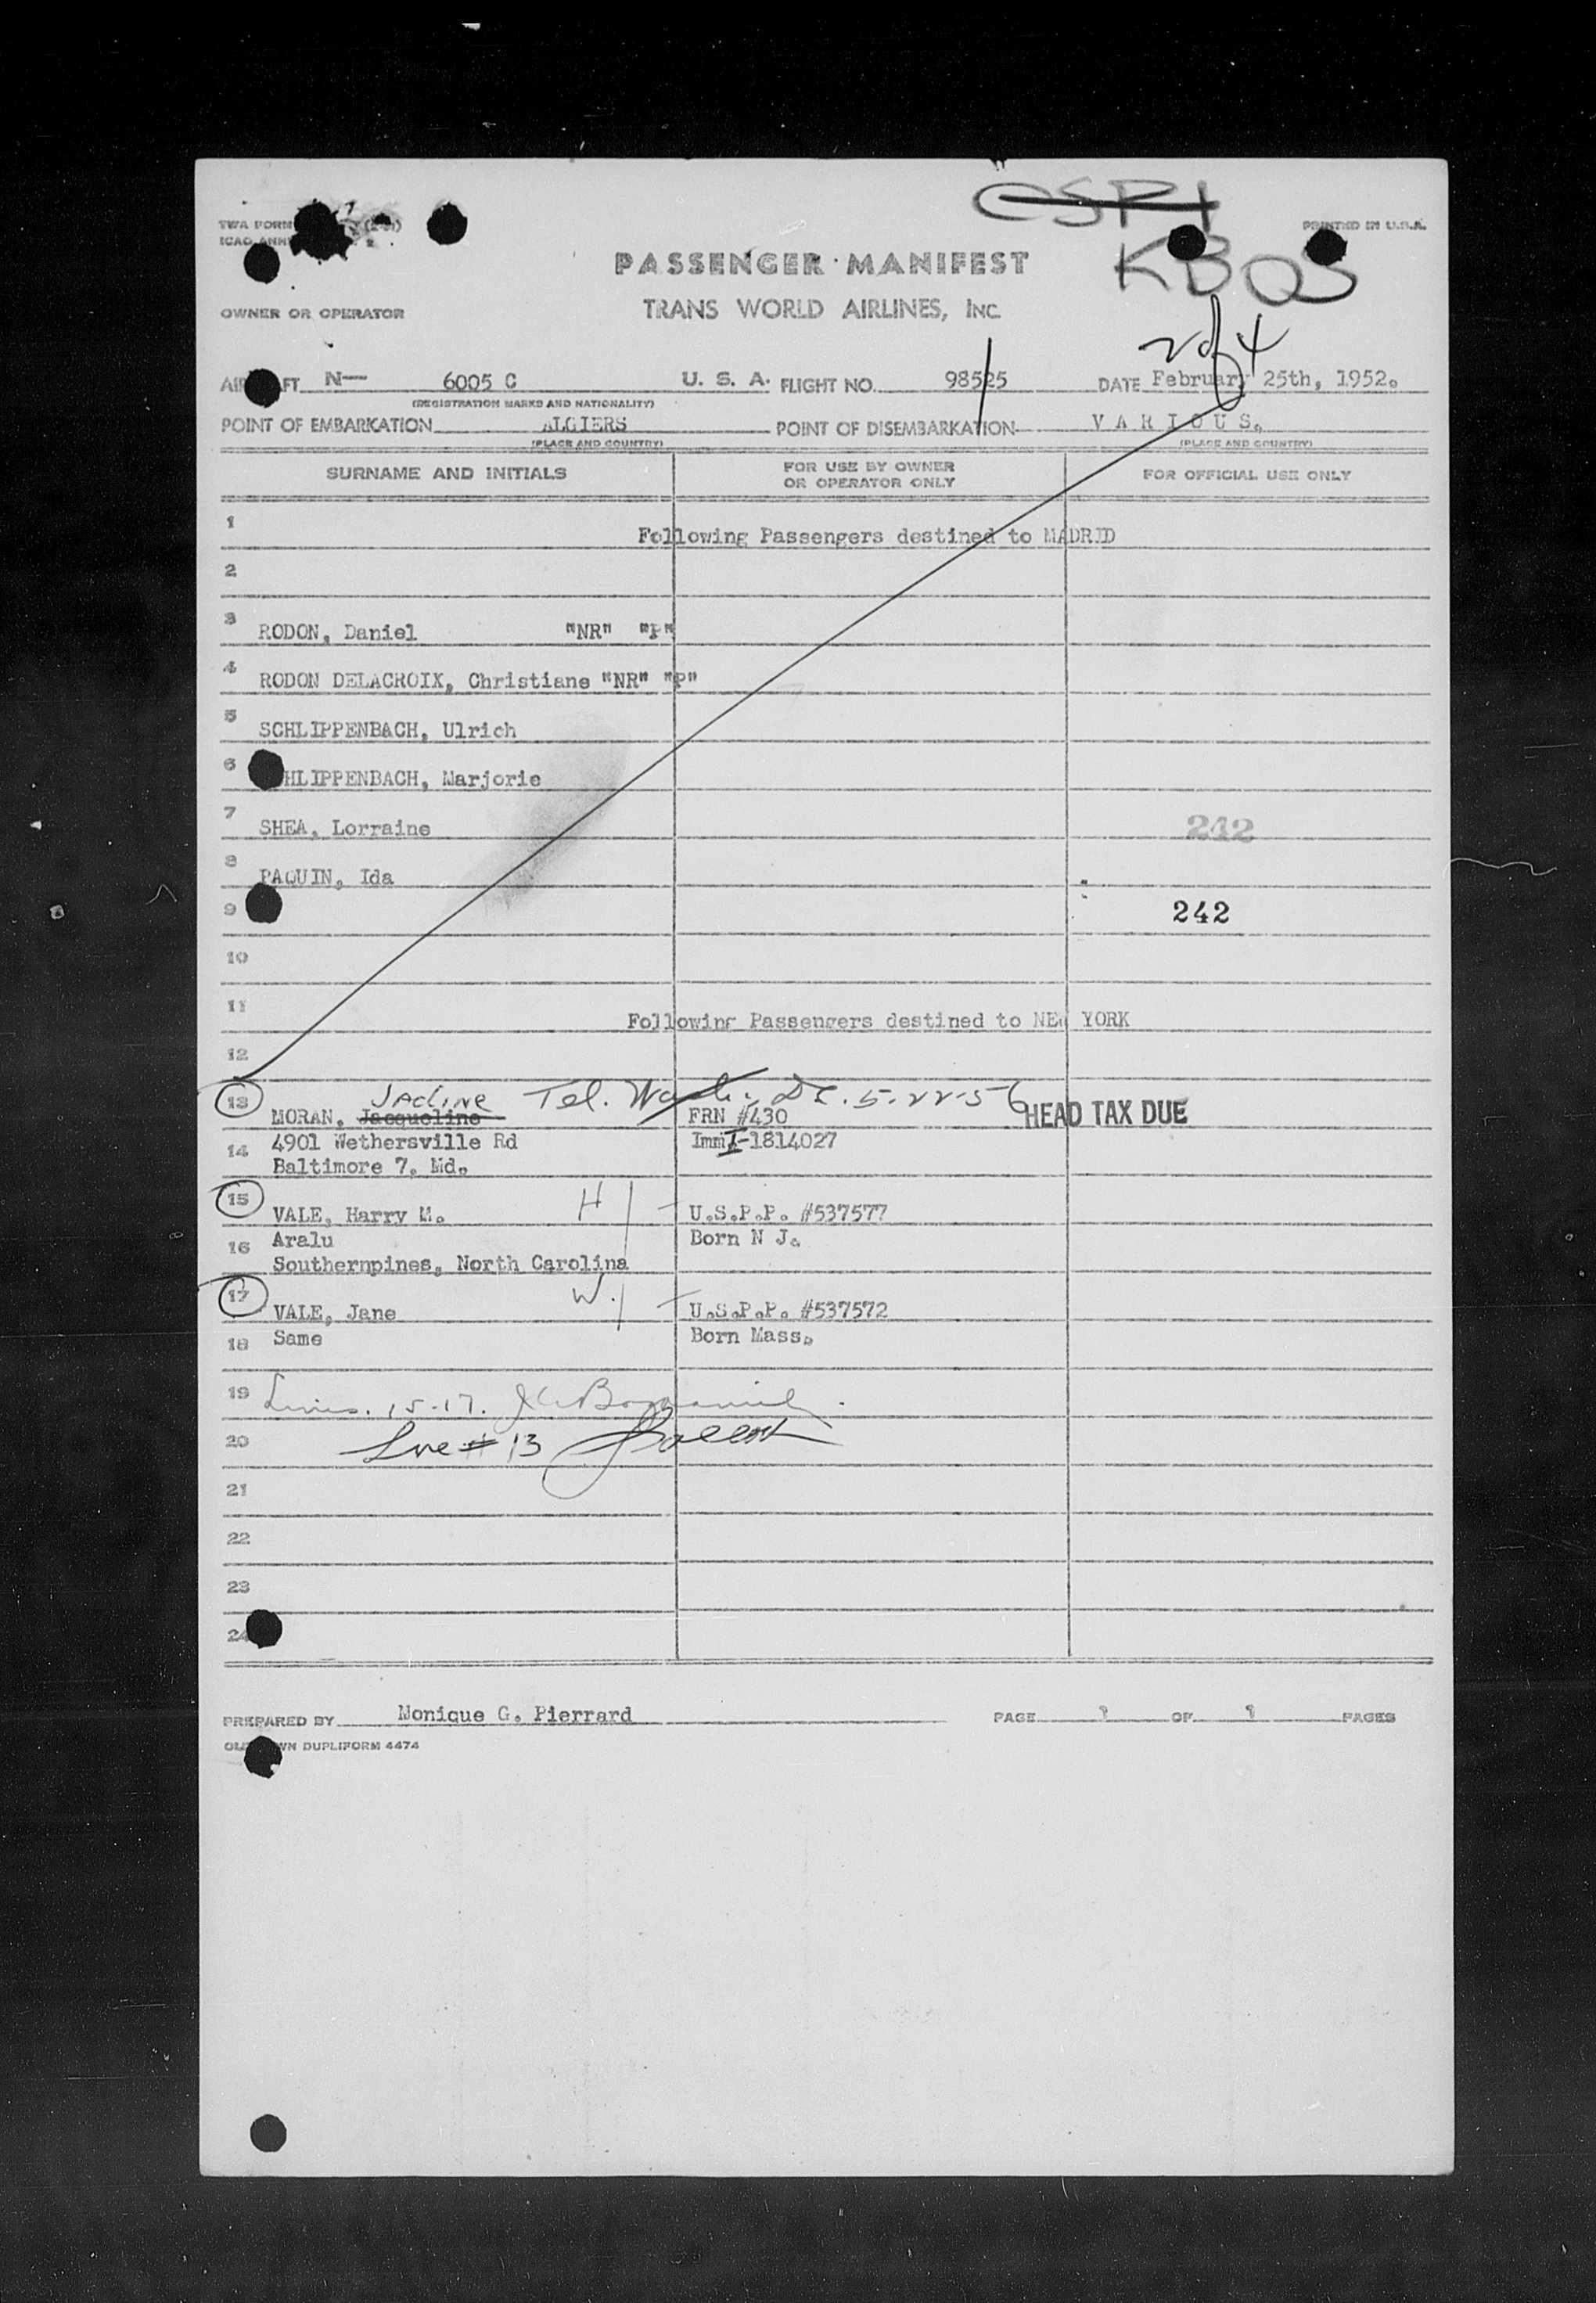 TWA FORM
ICAO ANN
PRINTED IN U.S.A.
KBOS
PASSENGER MANIFEST
TRANS WORLD AIRLINES, INC.
OWNER OR OPERATOR
2 of 4
N— 6005 C U. S. A. FLIGHT NO. 98525 DATE February 25th, 1952.
(REGISTRATION MARKS AND NATIONALITY)
POINT OF EMBARKATION ALGIERS POINT OF DISEMBARKATION V A R I O U S.
(PLACE AND COUNTRY) (PLACE AND COUNTRY)
SURNAME AND INITIALS FOR USE BY OWNER OR OPERATOR ONLY FOR OFFICIAL USE ONLY
1 Following Passengers destined to MADRID
2
3 RODON, Daniel "NR" "P"
4 RODON DELACROIX, Christiane "NR" "P"
5 SCHLIPPENBACH, Ulrich
6 HLIPPENBACH, Marjorie
7 SHEA, Lorraine 242
8 PAQUIN, Ida
9 242
10
11 Following Passengers destined to NEW YORK
12
Jacline Tel. Wash. DC. 5-22-56
13 MORAN, Jacqueline FRN #430 HEAD TAX DUE
14 4901 Wethersville Rd Immi I-1814027
Baltimore 7, Md.
15 VALE, Harry M. H U.S.P.P. #537577
16 Aralu Born N J.
Southernpines, North Carolina
17 VALE, Jane W. U.S.P.P. #537572
18 Same Born Mass.
19 Lines. 15-17.
20 Line # 13
21
22
23
24
PREPARED BY Monique G. Pierrard PAGE 1 OF 1 PAGES
DUPLIFORM 4474